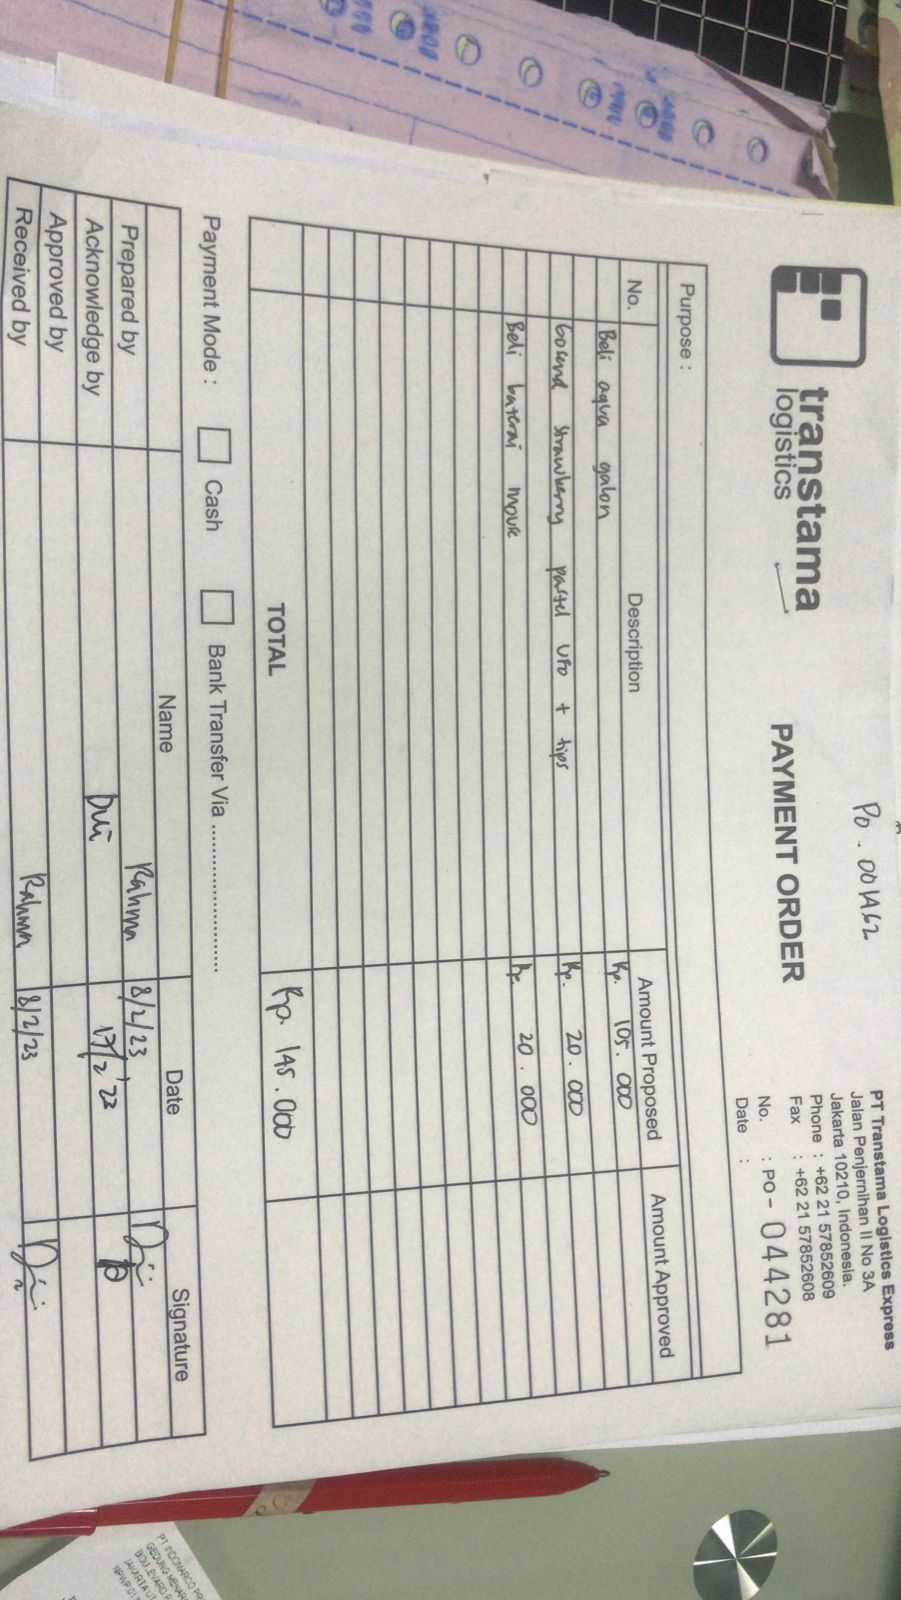 transtama
logistics
PAYMENT ORDER
PO. 001462
PT Transtama Logistics Express
Jalan Penjernihan II No 3A
Jakarta 10210, Indonesia.
Phone : +62 21 57852609
Fax : +62 21 57852608
No. : PO - 044281
Date :
Purpose :
No. Description Amount Proposed Amount Approved
Beli aqua galon Rp. 105.000
Gosend strawberry pastel UFO + tips Rp. 20.000
Beli baterai mouse Rp. 20.000
TOTAL Rp. 145.000
Payment Mode : Cash Bank Transfer Via ........................
Name Date Signature
Prepared by Rahma 8/2/23
Acknowledge by Dwi 17/2'23
Approved by
Received by Rahma 8/2/23